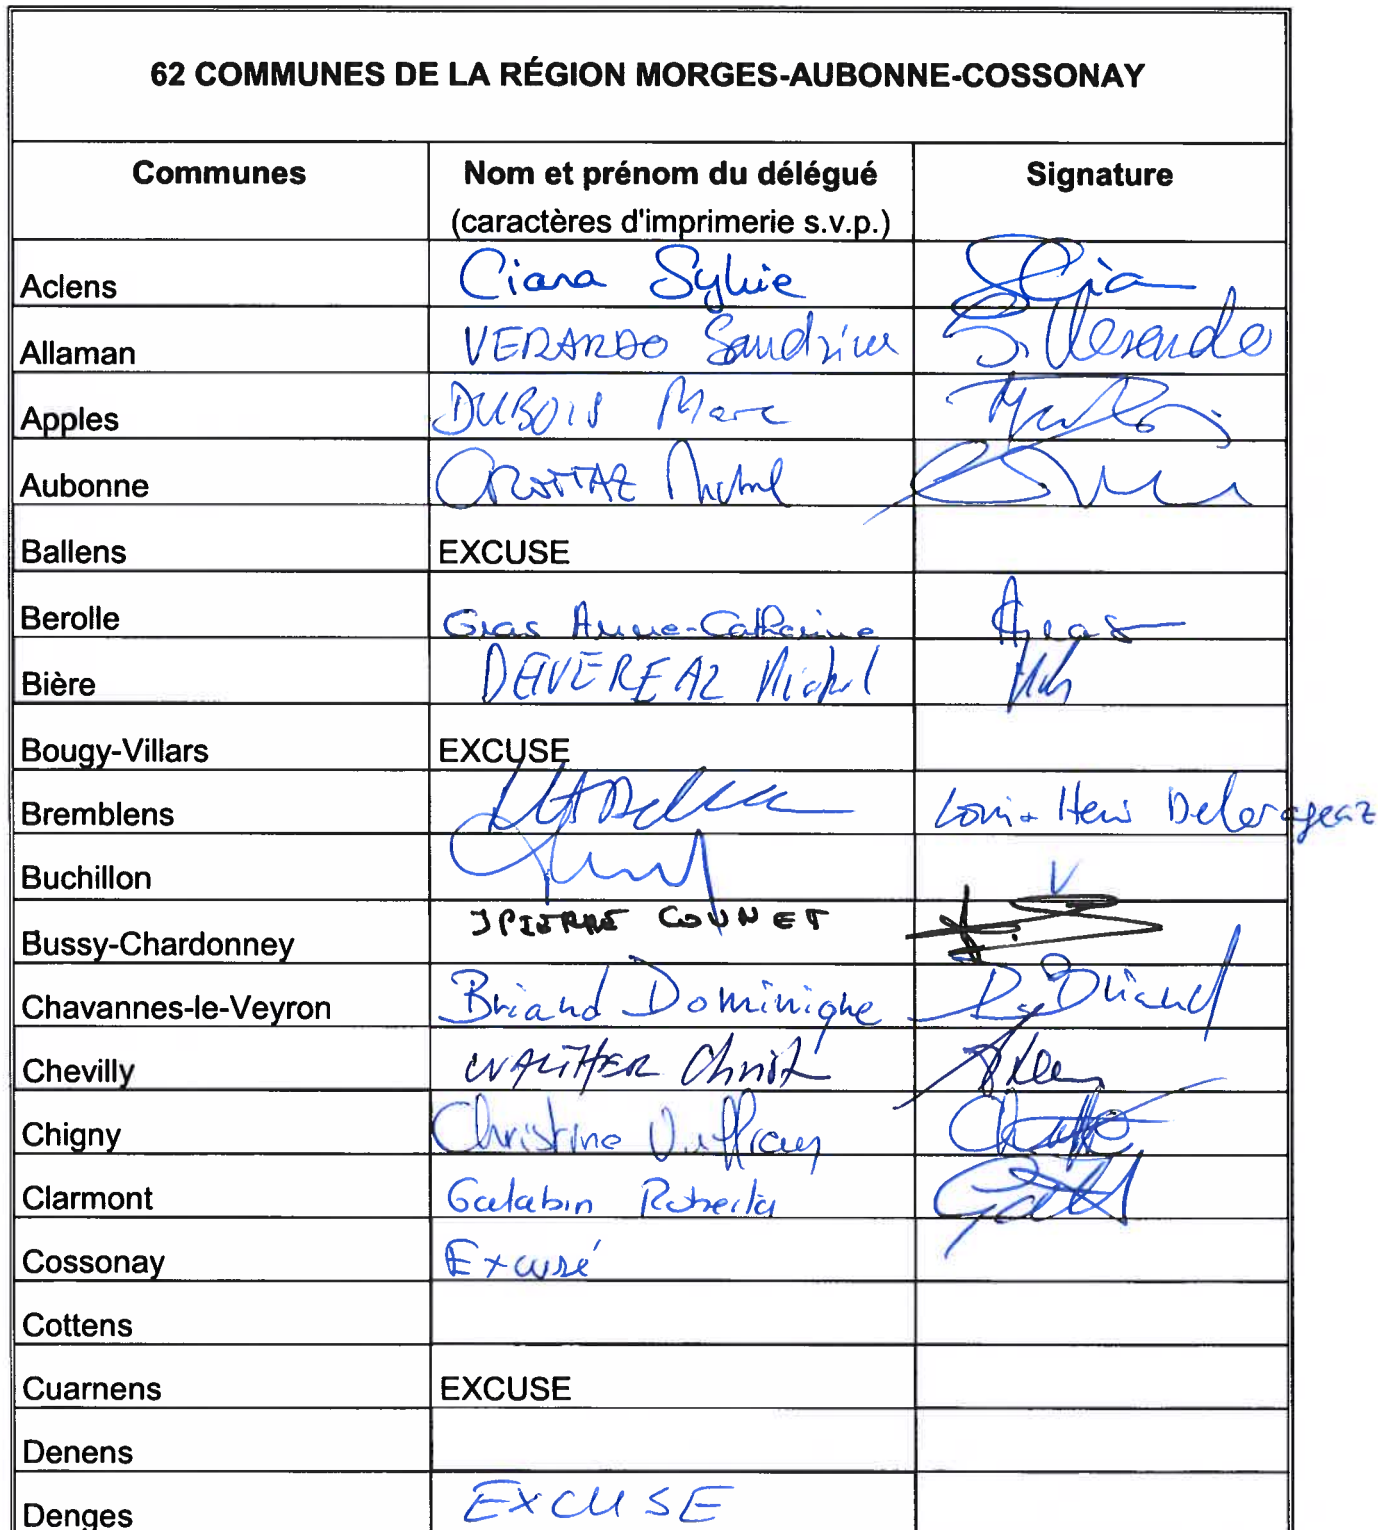 62 COMMUNES DE LA RÉGION MORGES-AUBONNE-COSSONAY
Communes Nom et prénom du délégué Signature
(caractères d'imprimerie s.v.p.)
Aclens Ciana Sylvie
Allaman VERARDO Sandrine S. Verardo
Apples DUBOIS Marc
Aubonne CROTTAZ Michel
Ballens EXCUSE
Berolle Gras Anne-Catherine AGras
Bière DEVEREAZ Michel
Bougy-Villars EXCUSE
Bremblens Louis-Henri Delarageaz
Buchillon
Bussy-Chardonney JPIERRE COUNET
Chavannes-le-Veyron Briand Dominique D. Briand
Chevilly WALTHER Christ
Chigny Christine
Clarmont Galabin Roberta
Cossonay Excusé
Cottens
Cuarnens EXCUSE
Denens
Denges EXCUSE